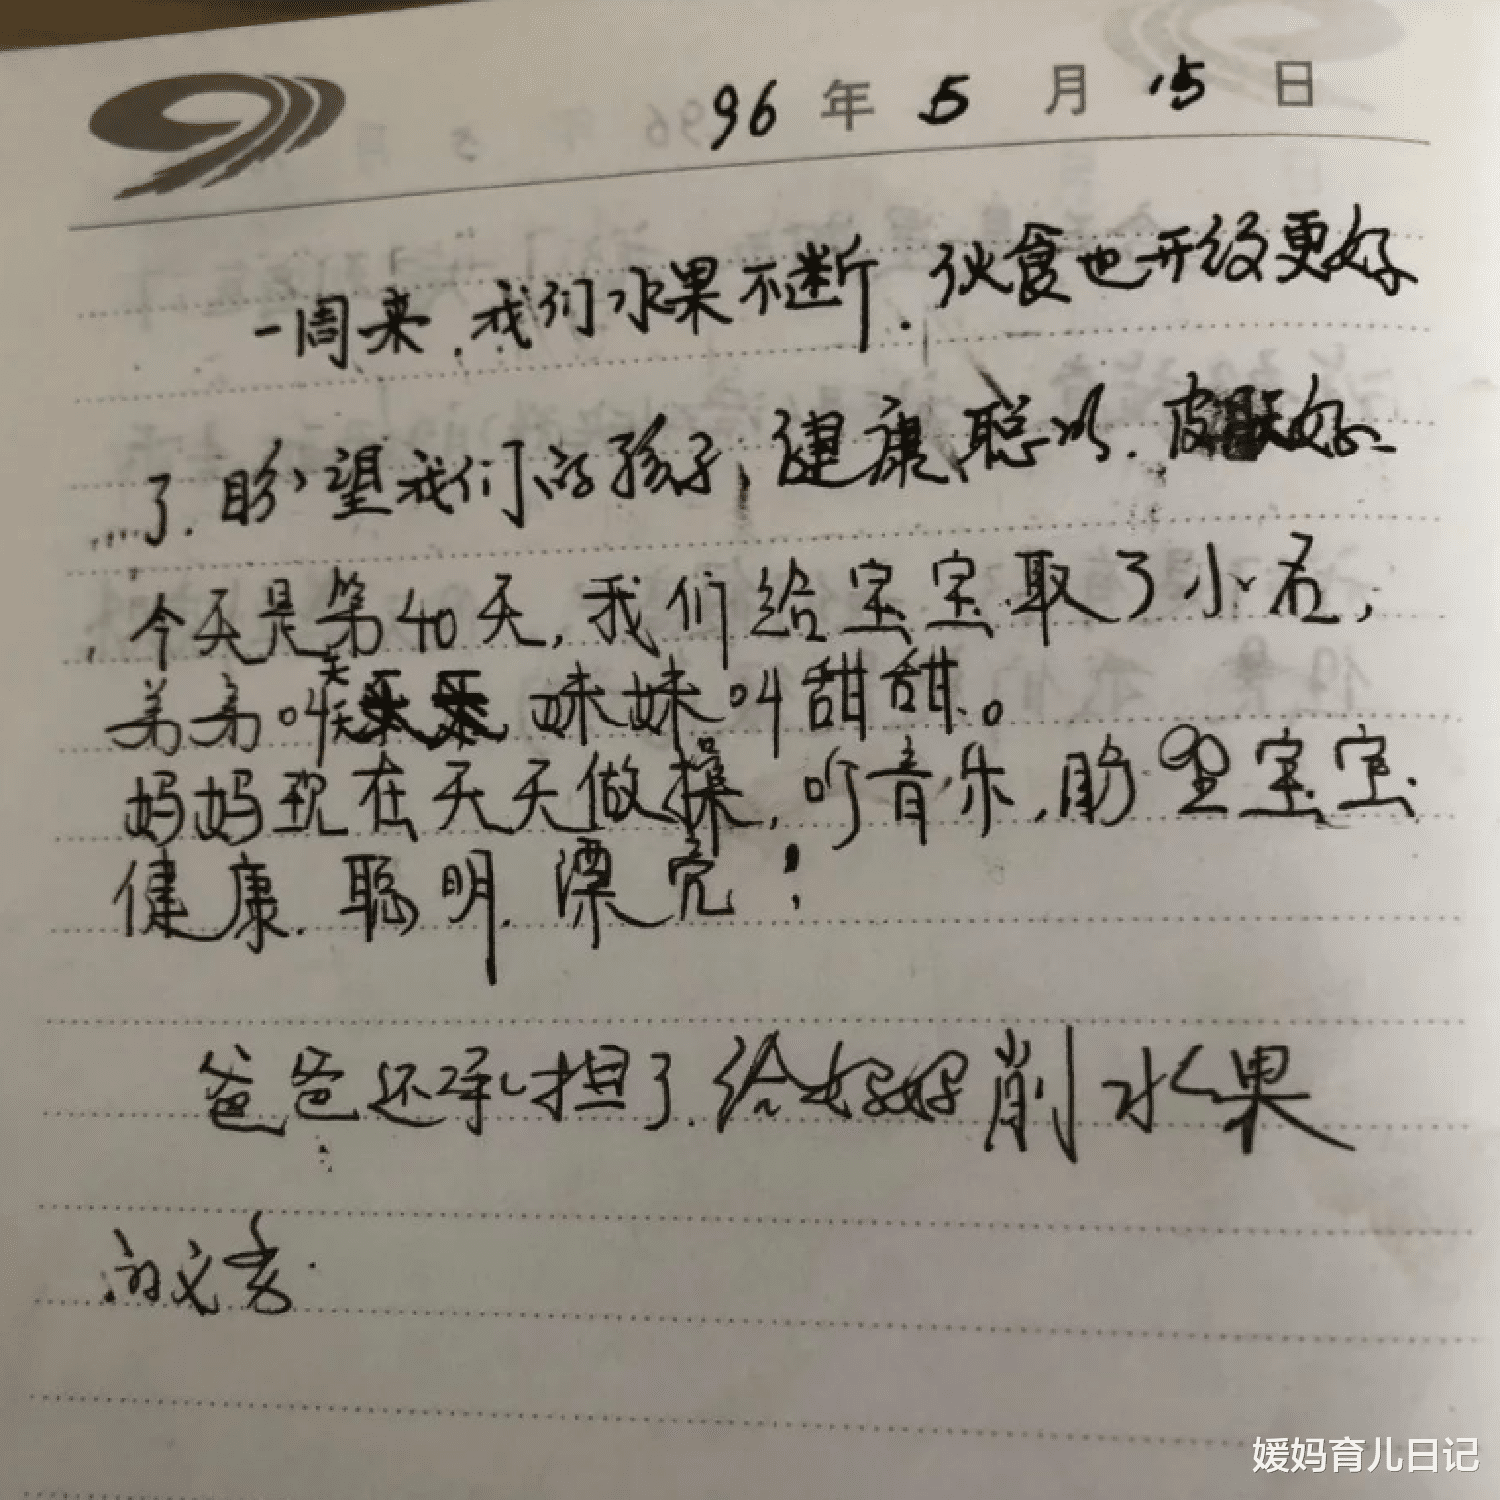 96 年 5 月 15 日
一周来,我们水果不断.伙食也开的更好
了.盼望我们的孩子,健康、聪明.皮肤好.
今天是第40天,我们给宝宝取了小名,
弟弟叫天天,妹妹叫甜甜。
妈妈现在天天做操,听音乐,盼望宝宝
健康.聪明.漂亮!
爸爸还承担了.给好好削水果
的义务.
媛妈育儿日记